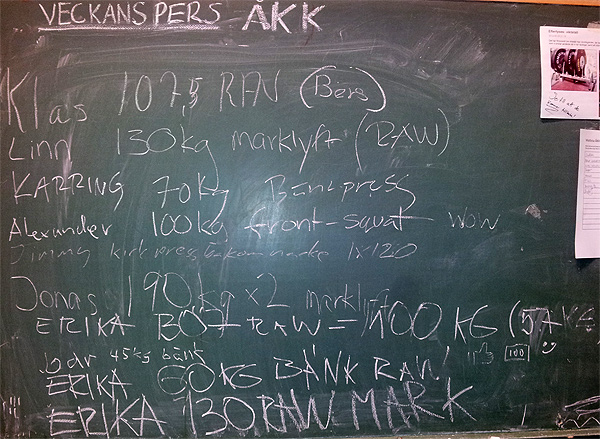 VECKANSPERS ÅKK
Klas 107,5 RAW (Bänk)
Linn 130kg marklyft (RAW)
KARRING 70kg Bänkpress
Alexander 100kg front-squat wow
Jimmy kirk press bakom nacke 1x120
Jonas 190kg x2 marklyft
ERIKA BÖJ RAW = 100 KG (57 KG
45kg bänk
100
ERIKA 60KG BÄNK RAW
ERIKA 130 RAW MARK